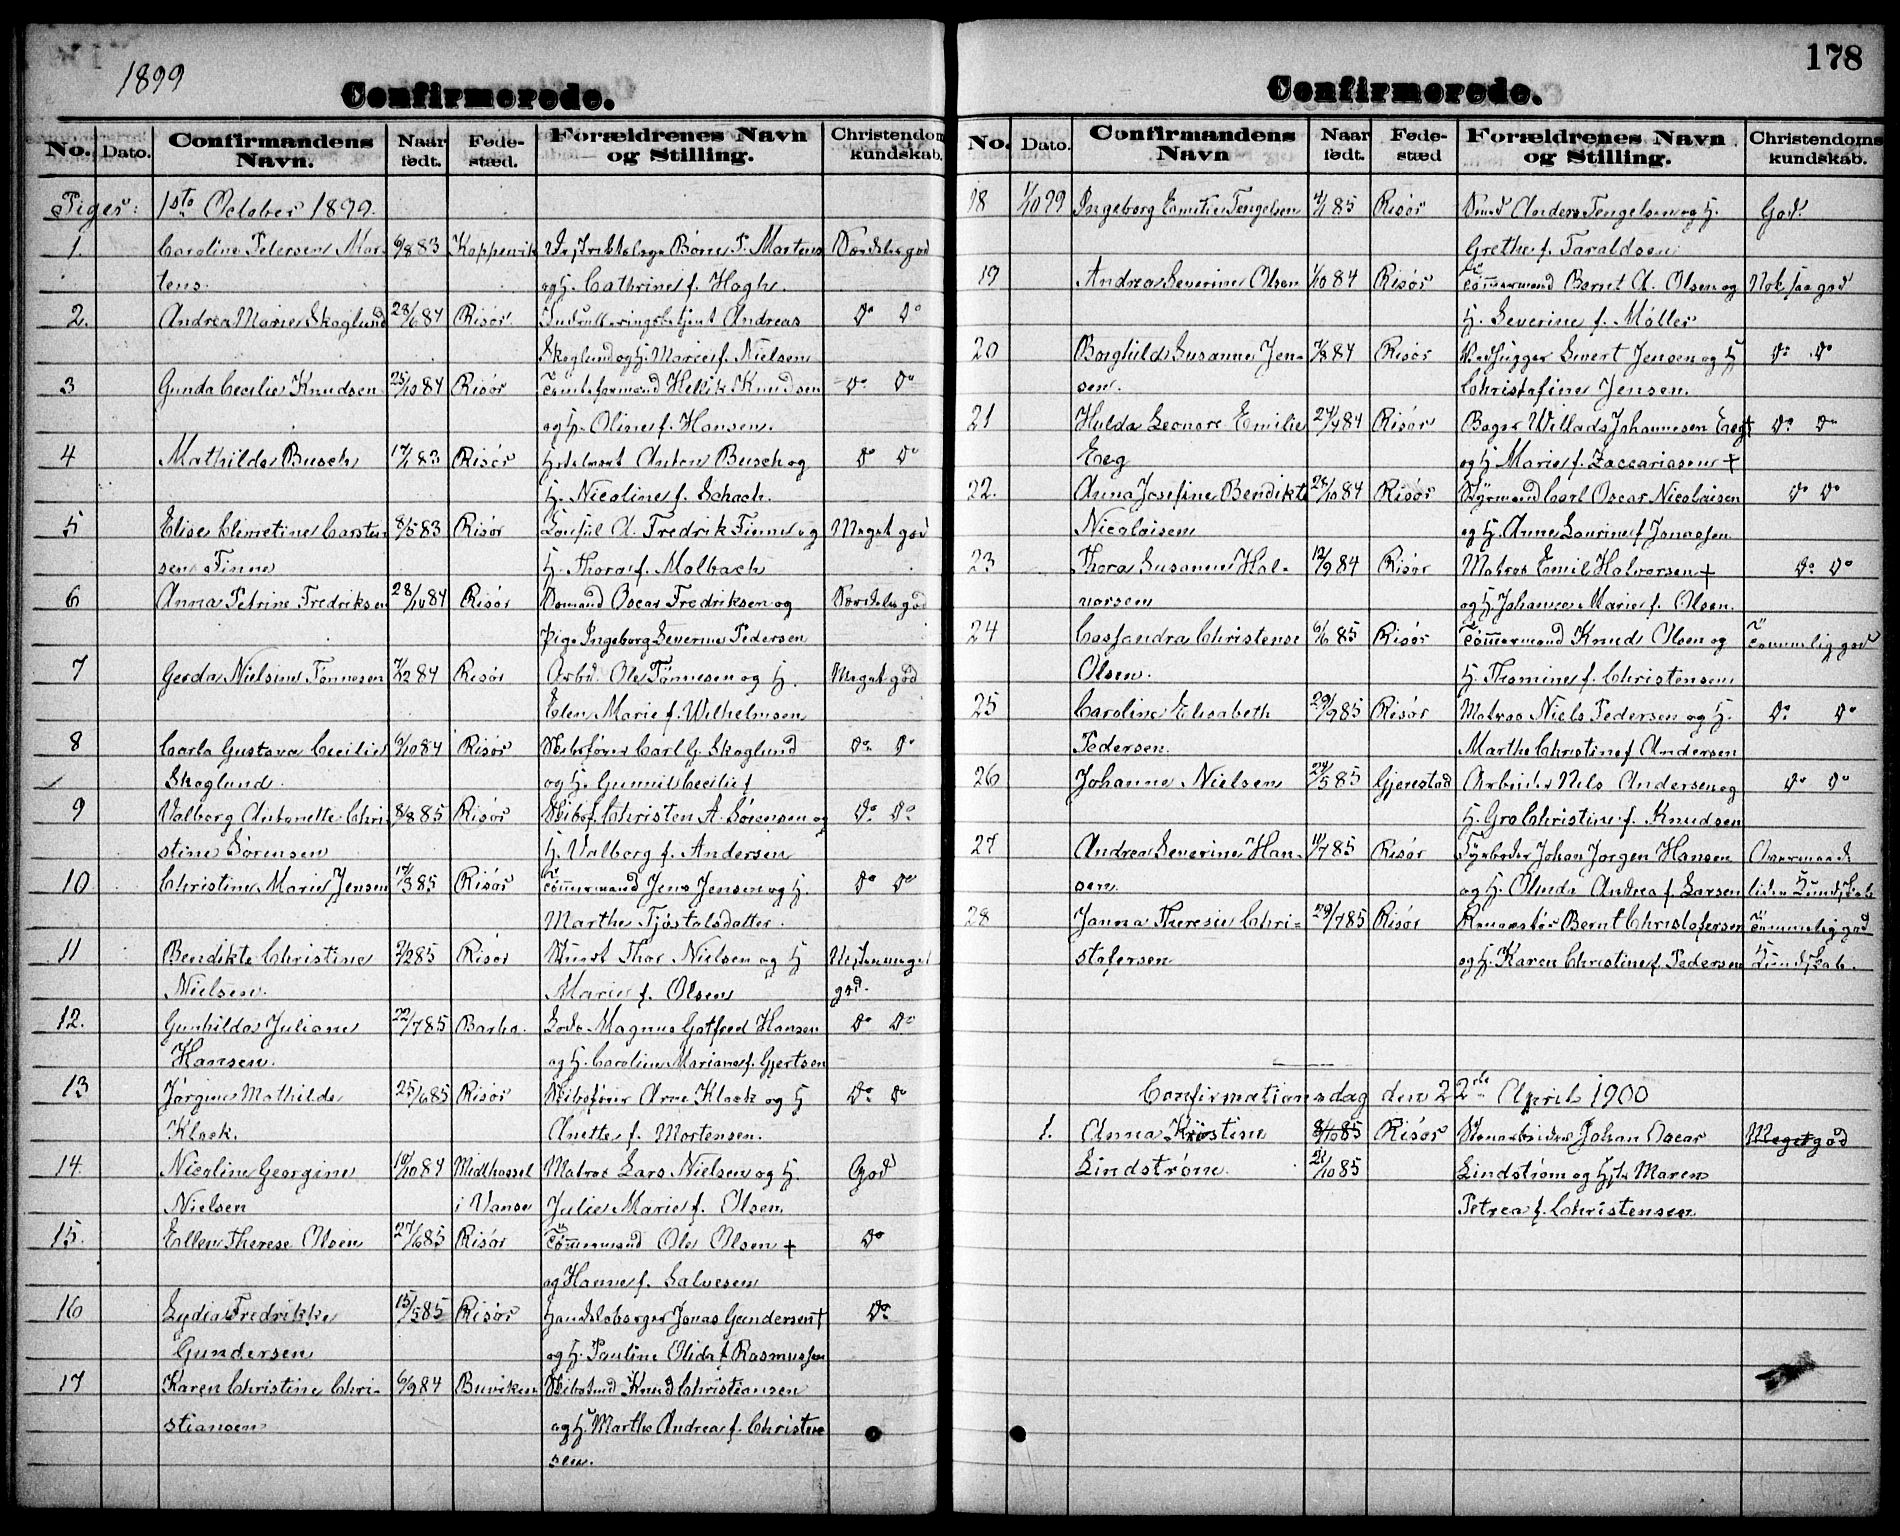 1899
Confirmerede.
No. Dato. Confirmandens Navn. Naar født. Føde-stæd. Forældrenes Navn og Stilling. Christendoms kundskab.
Piger: 1ste October 1899.
1. Caroline Petersen Mar- 6/8 83 Koppervik Børre P. Martens Særdeles god
tens. og H. Cathrine f. Hagh.
2. Andrea Marie Skoglund 28/6 84 Risør Andreas Do Do
Skoglund og H. Marie f. Nielsen
3 Gunda Cecilie Knudsen 25/10 84 Risør Tomteformand Hellik Knudsen Do Do
og H. Oline f. Hansen.
4 Mathilde Busch 17/1 83 Risør Anton Busch og Do Do
H. Nicoline f. Schach.
5 Elise Clemetine Carsten 8/5 83 Risør Consul A. Fredrik Finne og Meget god
sen Finne H. Thora f. Malbach
6 Anna Petrine Fredriksen 28/10 84 Risør Sømand Oscar Fredriksen og Særdeles god
pige Ingeborg Severine Pedersen
7 Gerda Nielsine Tønnesen 7/12 84 Risør Arbd. Ole Tønnesen og H. Meget god
Elen Marie f. Wilhelmsen
8 Carla Gustava Cecilie 6/10 84 Risør Skibsfører Carl G. Skoglund Do Do
Skoglund. og H. Gunnil Cecilie f
9 Valborg Antonette Chri- 8/8 85 Risør Skibsf. Christen A. Sørensen og Do Do
stine Sørensen H. Valborg f. Andersen
10 Christine Marie Jensen 17/3 85 Risør Tømmermand Jens Jensen og H. Do Do
Marthe Tjøstolsdatter.
11 Bendikte Christine 2/2 85 Risør Stuert Thor Nielsen og H Næsten meget
Nielsen. Marie f. Olsen god.
12. Gunhilda Juliane 22/7 85 Barbo. Lods Magnus Gotfred Hansen Do Do
Hansen. og H. Caroline Mariane f. Gjertsen
13 Jørgine Mathilde 25/6 85 Risør Skibsfører Arne Klock og H Do Do
Klock. Anette f. Mortensen.
14. Nicoline Georgine 10/10 84 Midthassel Matros Lars Nielsen og H. God
Nielsen i Vanse Julie Marie f. Olsen
15. Ellen Therese Olsen 27/6 85 Risør Tømmermand Ole Olsen † Do
og Hanne f. Salvesen
16 Lydia Fredrikke 15/5 85 Risør Handelsborger Jonas Gundersen † Do
Gundersen og H. Pauline Olida f. Rasmussen
17 Karen Christine Chri- 6/9 84 Buviken Skibstmd Knud Christiansen
stiansen og H. Marthe Andrea f. Christen
sen.
178
Confirmerede.
No. Dato. Confirmandens Navn Naar født. Føde-stæd Forældrenes Navn og Stilling. Christendoms kundskab.
18 1/10 99 Ingeborg Emilie Tengelsen 4/1 85 Risør Smed Anders Tengelsen og H. God.
Grethe f. Taraldsen
19 Andrea Severine Olsen 1/10 84 Risør Tømmermand Bernt A. Olsen og Nok saa god
H. Severine f. Møller
20 Borghild Susanne Jen- 7/8 84 Risør Sivert Jensen og H Do Do
sen. Christofine Jensen.
21 Hulda Leonore Emilie 27/4 84 Risør Bager Willads Johannesen Eeg † Do Do
Eeg og H Marie f. Zaccariasen †
22. Anna Josefine Bendikte 28/10 84 Risør Styrmand Carl Oscar Nicolaisen Do Do
Nicolaisen og H. Anne Laurine f Jonassen
23 Thora Susanne Hal- 12/9 84 Risør Matros Emil Halvorsen † Do Do
vorsen og H. Johanne Marie f. Olsen.
24 Cassandra Christense 6/6 85 Risør Tømmermand Knud Olsen og Temmelig god
Olsen. H. Thomine f. Christensen
25 Caroline Elisabeth 29/9 85 Risør Matros Niels Pedersen og H. Do Do
Pedersen. Marthe Christine f Andersen
26 Johanne Nielsen 24/5 85 Gjerestad Arbeider Nils Andersen og Do Do
H. Gro Christine f. Knudsen
27 Andrea Severine Han- 11/7 85 Risør Fyrbøder Johan Jørgen Hansen
sen. og H. Olinda Andrea f Larsen liden Kundskab
28 Janna Theresie Chri- 29/7 85 Risør Bernt Christofersen Temmelig god
stofersen og H. Karen Christine f. Pedersen Kundskab.
Confirmationsdag den 22de April 1900
1. Anna Kristine 8/10 85 Risør Stenarbeider Johan Oscar Meget god
Lindstrøm. 21/10 85 Lindstrøm og Hstr Maren
Petrea f. Christensen